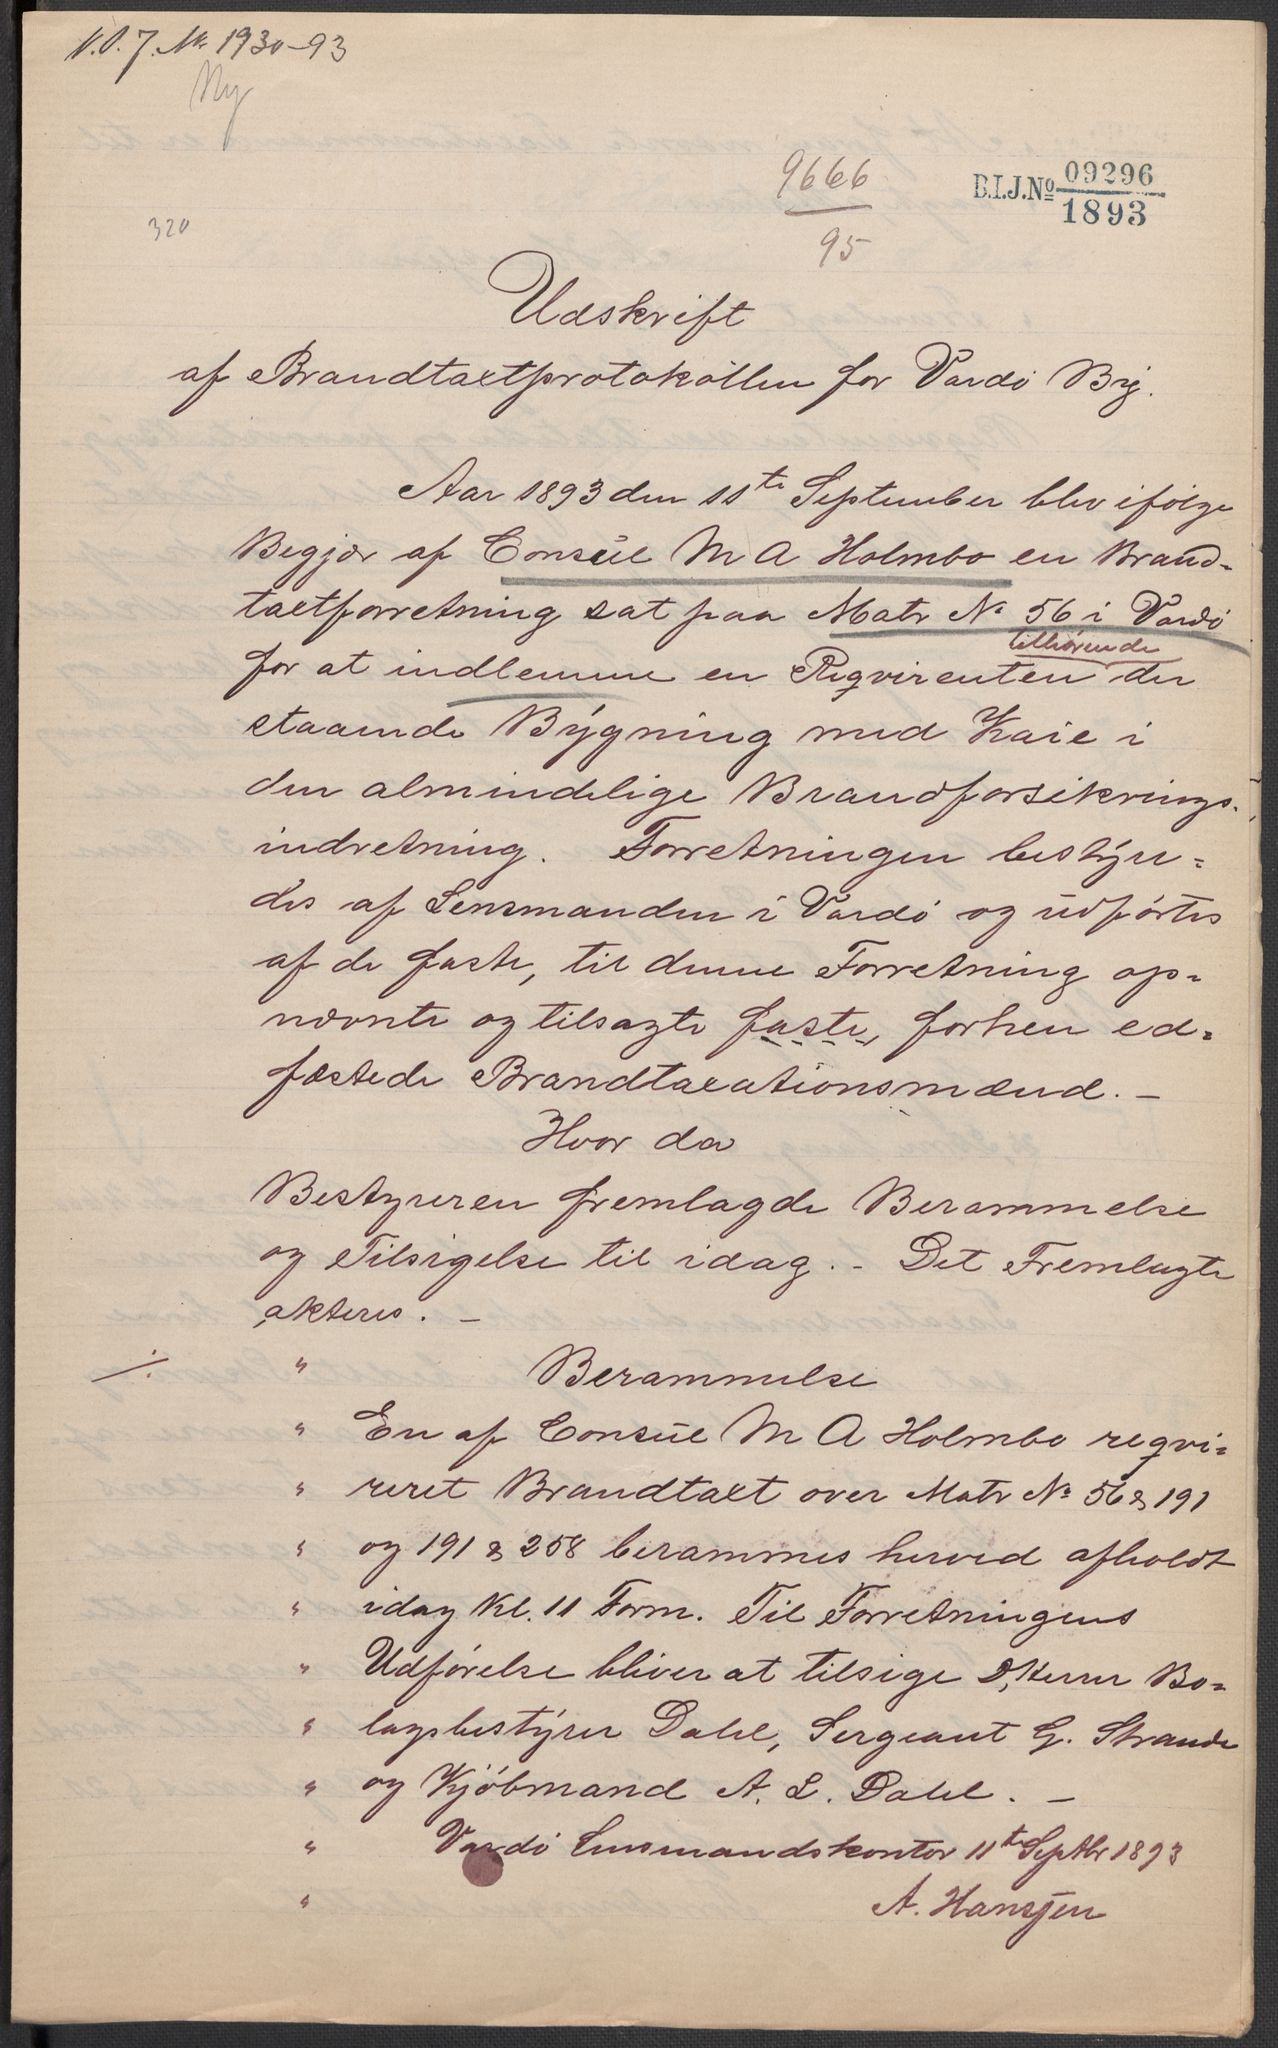 V.P.7. No 1930-93
Ny
9666
95
B.I.J.No 09296
1893
320
Udskrift
af Brandtaxtprotokollen for Vardö By.
Aar 1893 den 11te September blev ifölge
Begjær af Consul M A Holmbo en Brand-
taxtforretning sat paa Matr No 56 i Vardö
tilhørende
for at indlemme en Reqvirenten der
staaende Bygning med Kaie i
den almindelige Brandforsikrings-
indretning. Forretningen bestyre-
des af Lensmanden i Vardö og udførtes
af de faste, til denne Forretning op-
nævnte og tilsagte faste, forhen ed-
fæstede Brandtaxationsmænd. -
Hvor da
Bestyreren fremlagde Berammelse
og Tilsigelse til idag. - Det Fremlagte
akteres. -
./. " Berammelse
" En af Consul M A Holmbo reqvi-
" reret Brandtaxt over Matr No 56 & 191
" og 191 & 258 berammes herved afholdt
" idag Kl. 11 Form. Til Forretningens
" Udförelse bliver at tilsige D'Herrer Bo-
" lagsbestyrer Dahl, Sergeant G. Strande
" og Kjöbmand A. L. Dahl. -
" Vardö Lensmandskontor 11te Septbr 1893
" A. Hanssen